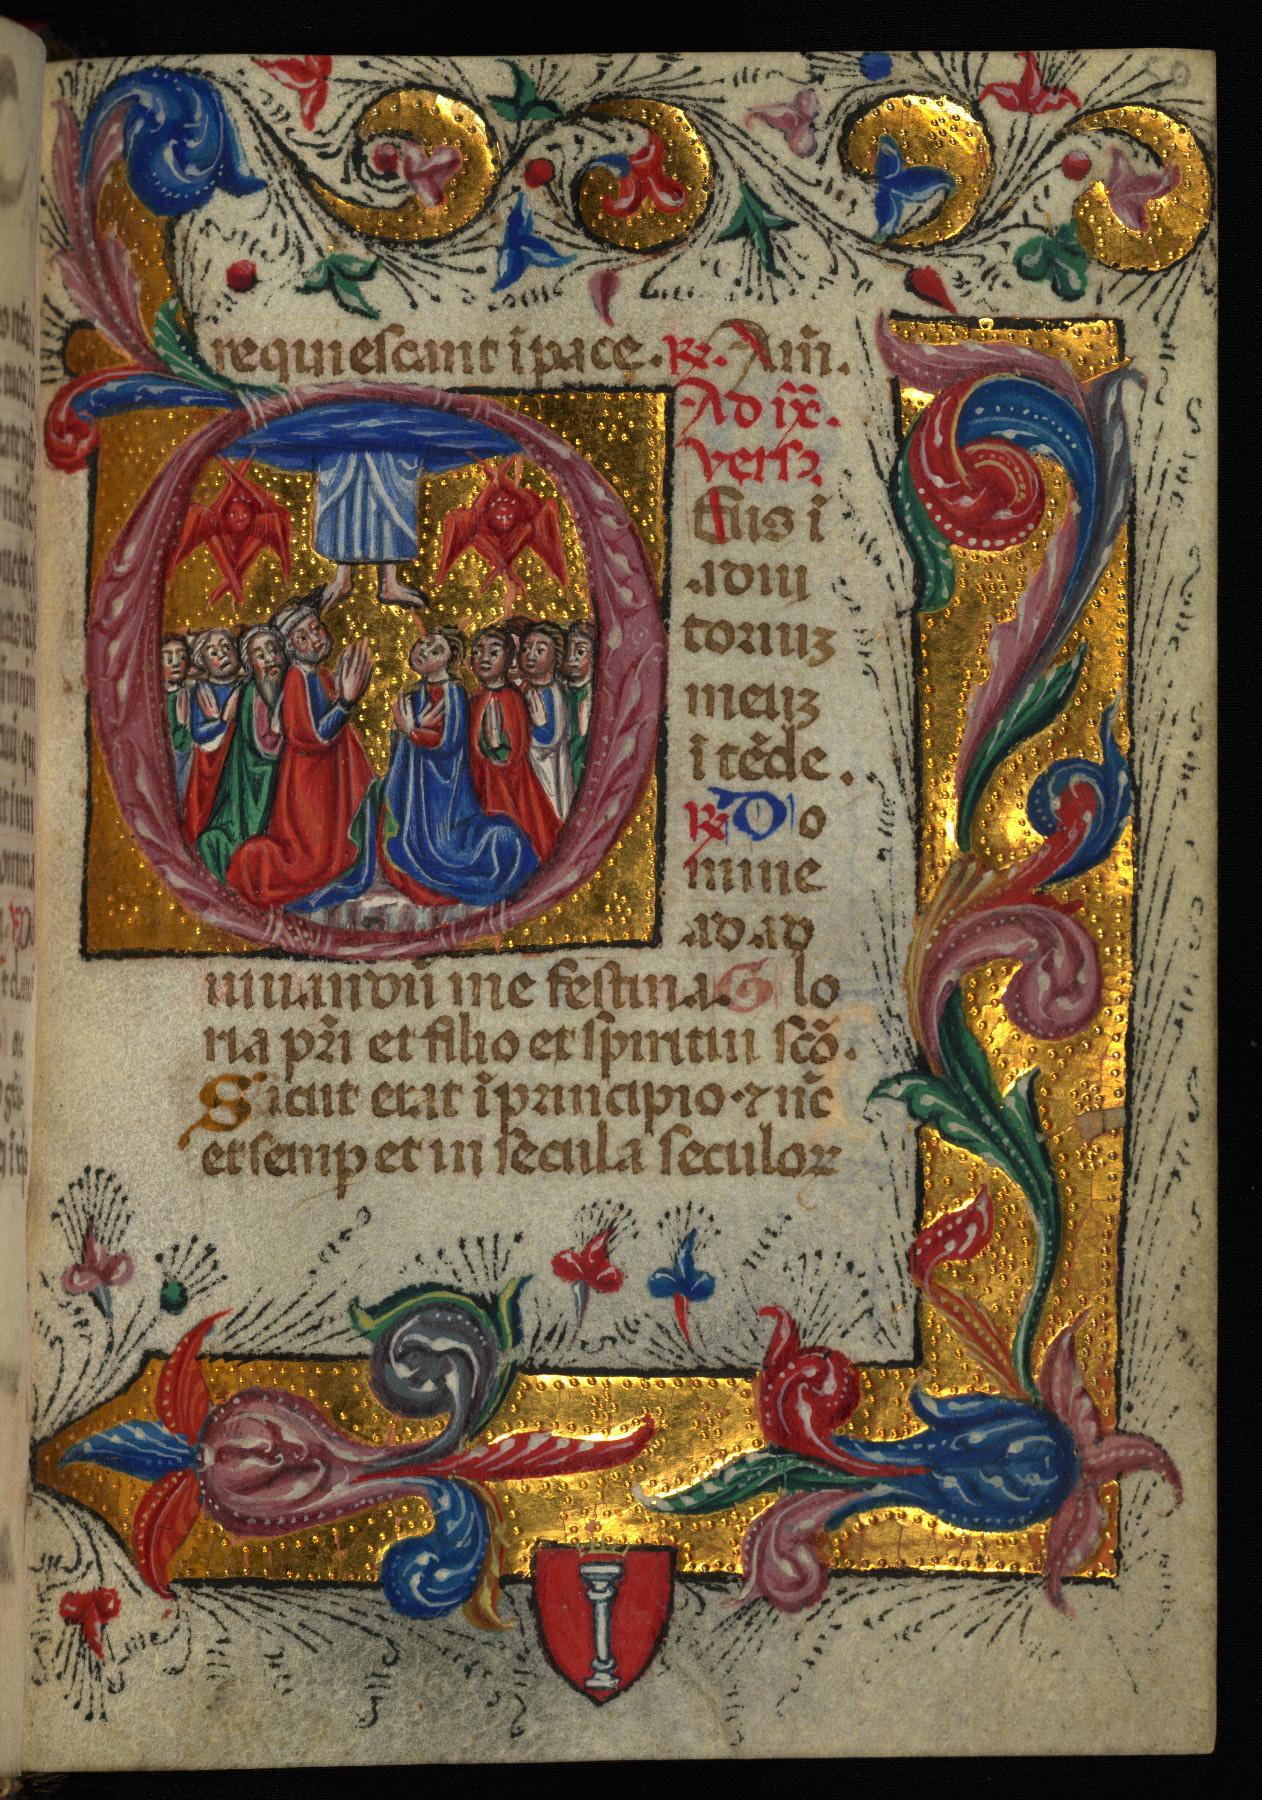 requiescant ī pace. ℟. Am̄.
Ad ix̄.
vers⁊
Eus ī
adiu
toriuꝫ
meuꝫ
ītēde.
℟ Do
mine
ad ad
iuuandū me festina Glo
ria pr̄i et filio et spiritui scō.
Sicut erat ī principio ⁊ nūc
et semp et in secula seculoꝝ